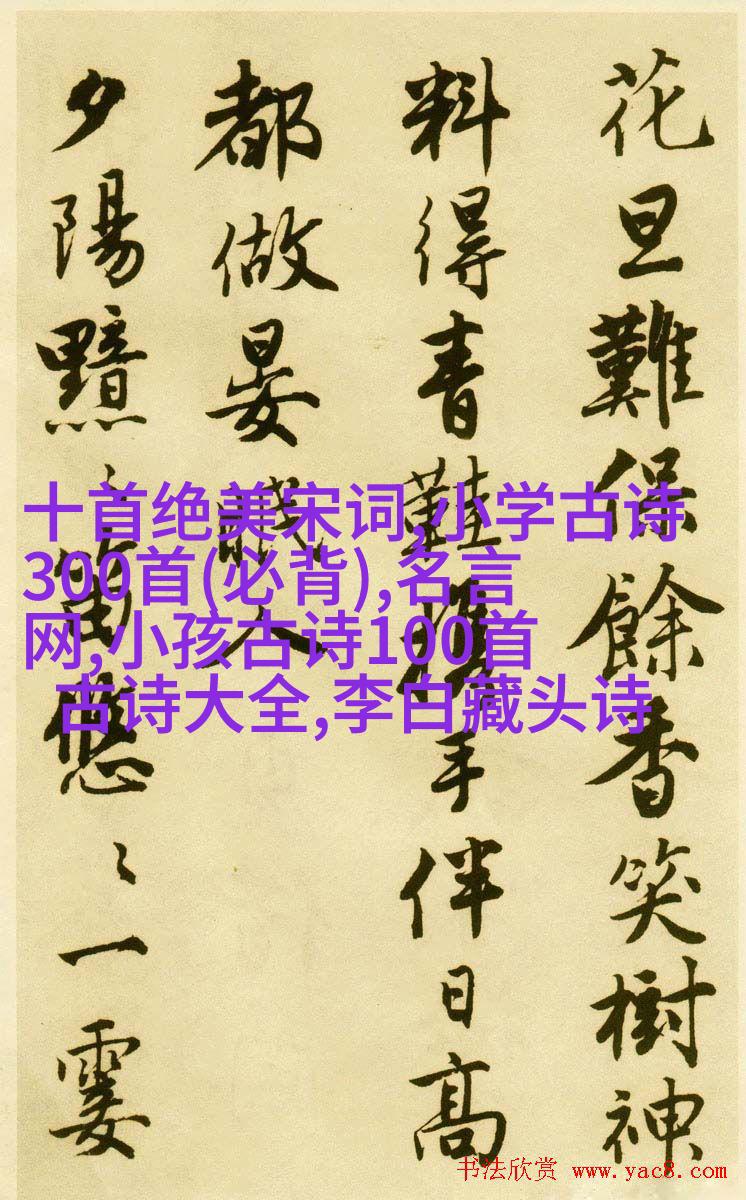 花旦難保餘香笑樹神
料得青鞋攜手伴日高
都做晏眠人
夕陽黯〻笛悠〻一霎
十首绝美宋词,小学古诗
300首(必背),名言
网,小孩古诗100首
古诗大全,李白藏头诗
书法欣赏 www.yac8.com